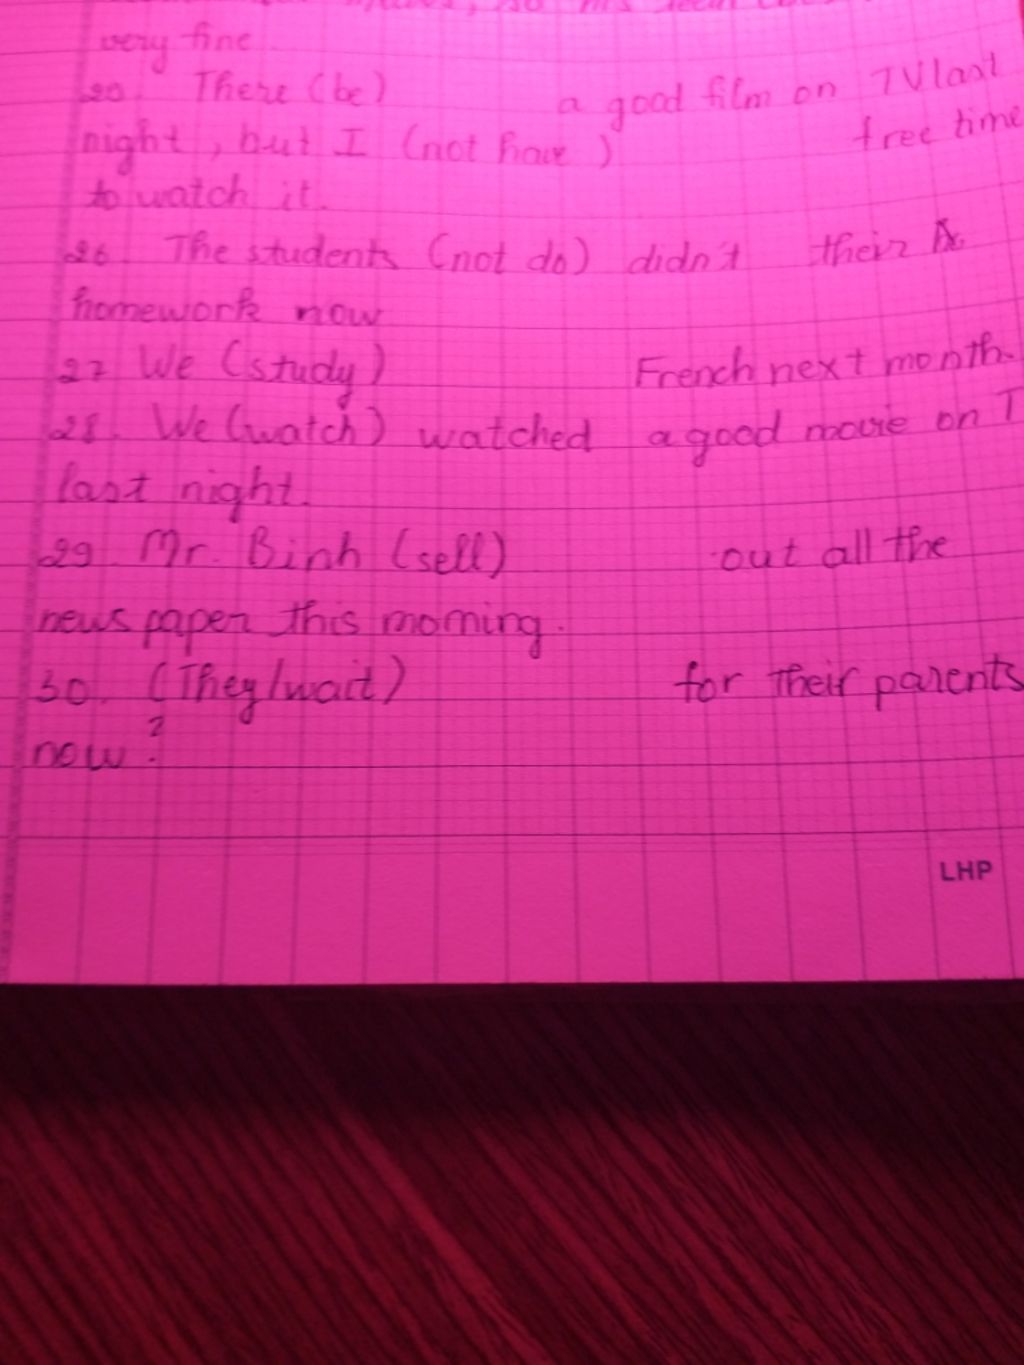 very fine
20. There (be) a good film on TV last
night, but I (not have) free time
to watch it.
26. The students (not do) didn't their
homework now
27 We (study) French next month.
28. We (watch) watched a good movie on T
last night.
29 Mr. Binh (sell) out all the
news paper this morning.
30. (They/wait) for their parents
now ?
LHP